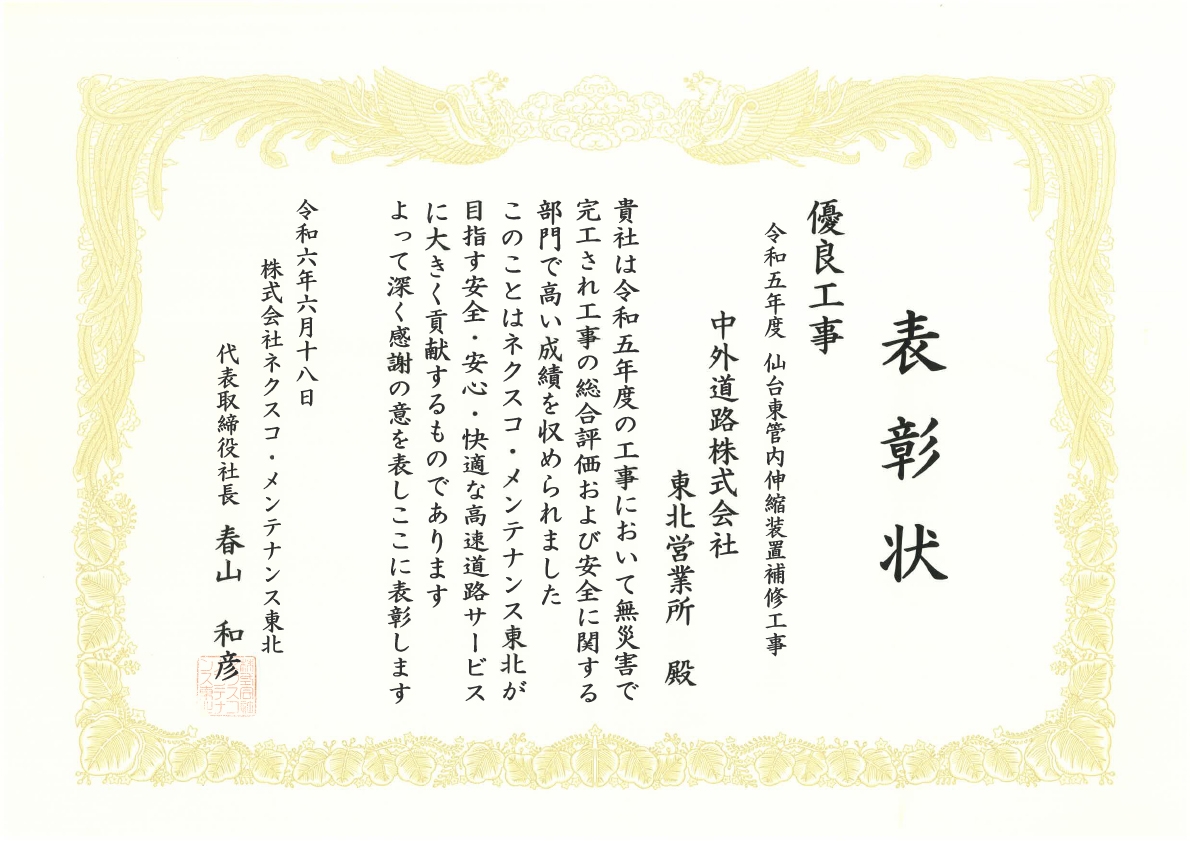 表彰状
優良工事
令和五年度 仙台東管内伸縮装置補修工事
中外道路株式会社
東北営業所 殿
貴社は令和五年度の工事において無災害で
完工され工事の総合評価および安全に関する
部門で高い成績を収められました
このことはネクスコ・メンテナンス東北が
目指す安全・安心・快適な高速道路サービス
に大きく貢献するものであります
よって深く感謝の意を表しここに表彰します
令和六年六月十八日
株式会社ネクスコ・メンテナンス東北
代表取締役社長 春山 和彦